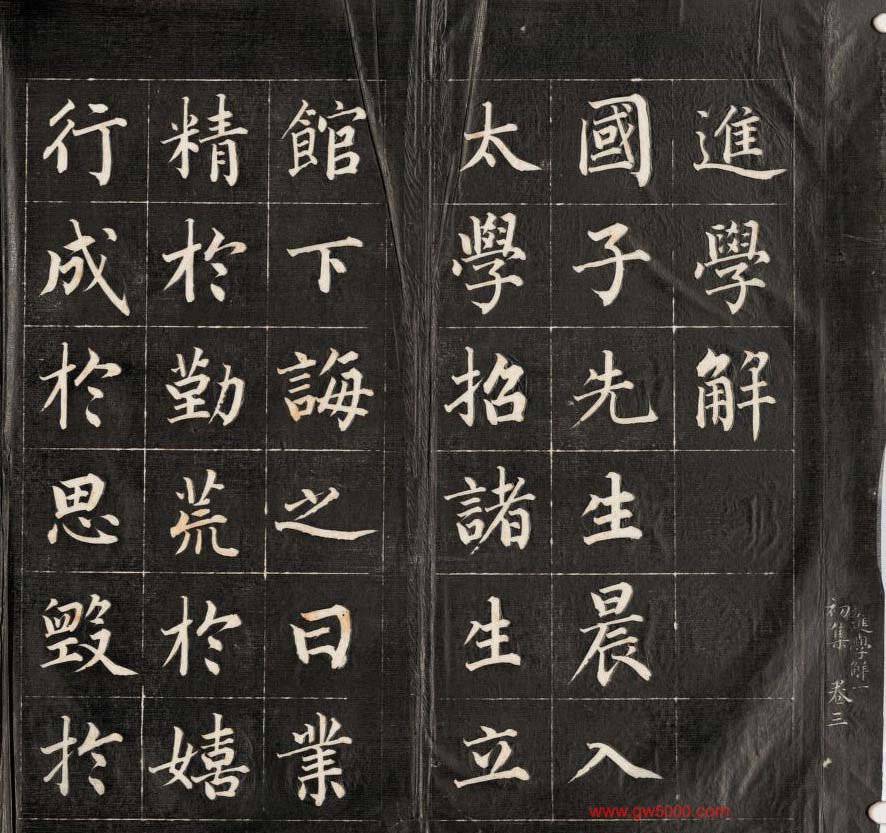 進學解
國子先生晨入
太學招諸生立
館下誨之曰業
精於勤荒於嬉
行成於思毀於
進學解一
初集 卷三
www.gw5000.com